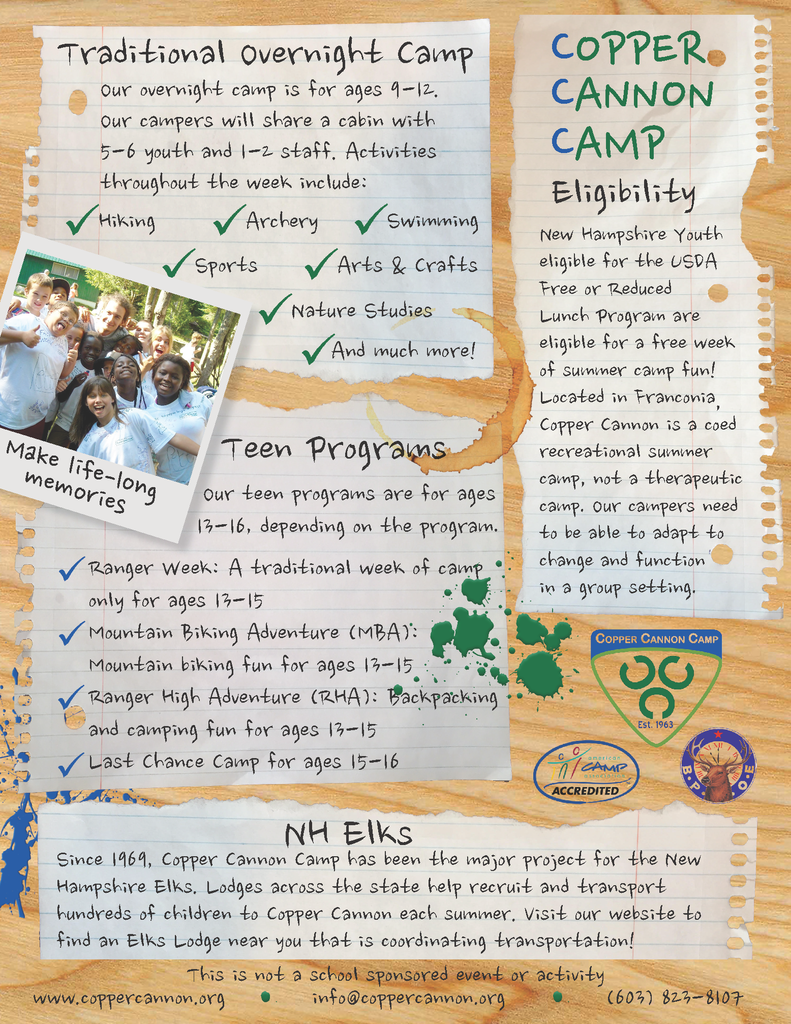 Traditional Overnight Camp
Our overnight camp is for ages 9-12.
Our campers will share a cabin with
5-6 youth and 1-2 staff. Activities
throughout the week include:
Hiking Archery Swimming
Sports Arts & Crafts
Nature Studies
And much more!
Make life-long
memories
Teen Programs
Our teen programs are for ages
13-16, depending on the program.
Ranger Week: A traditional week of camp
only for ages 13-15
Mountain Biking Adventure (MBA):
Mountain biking fun for ages 13-15
Ranger High Adventure (RHA): Backpacking
and camping fun for ages 13-15
Last Chance Camp for ages 15-16
COPPER
CANNON
CAMP
Eligibility
New Hampshire Youth
eligible for the USDA
Free or Reduced
Lunch Program are
eligible for a free week
of summer camp fun!
Located in Franconia,
Copper Cannon is a coed
recreational summer
camp, not a therapeutic
camp. Our campers need
to be able to adapt to
change and function
in a group setting.
COPPER CANNON CAMP
CCC
Est. 1963
american
CAMP
association
ACCREDITED
B.P.O.E
NH Elks
Since 1969, Copper Cannon Camp has been the major project for the New
Hampshire Elks. Lodges across the state help recruit and transport
hundreds of children to Copper Cannon each summer. Visit our website to
find an Elks Lodge near you that is coordinating transportation!
This is not a school sponsored event or activity
www.coppercannon.org • info@coppercannon.org • (603) 823-8107